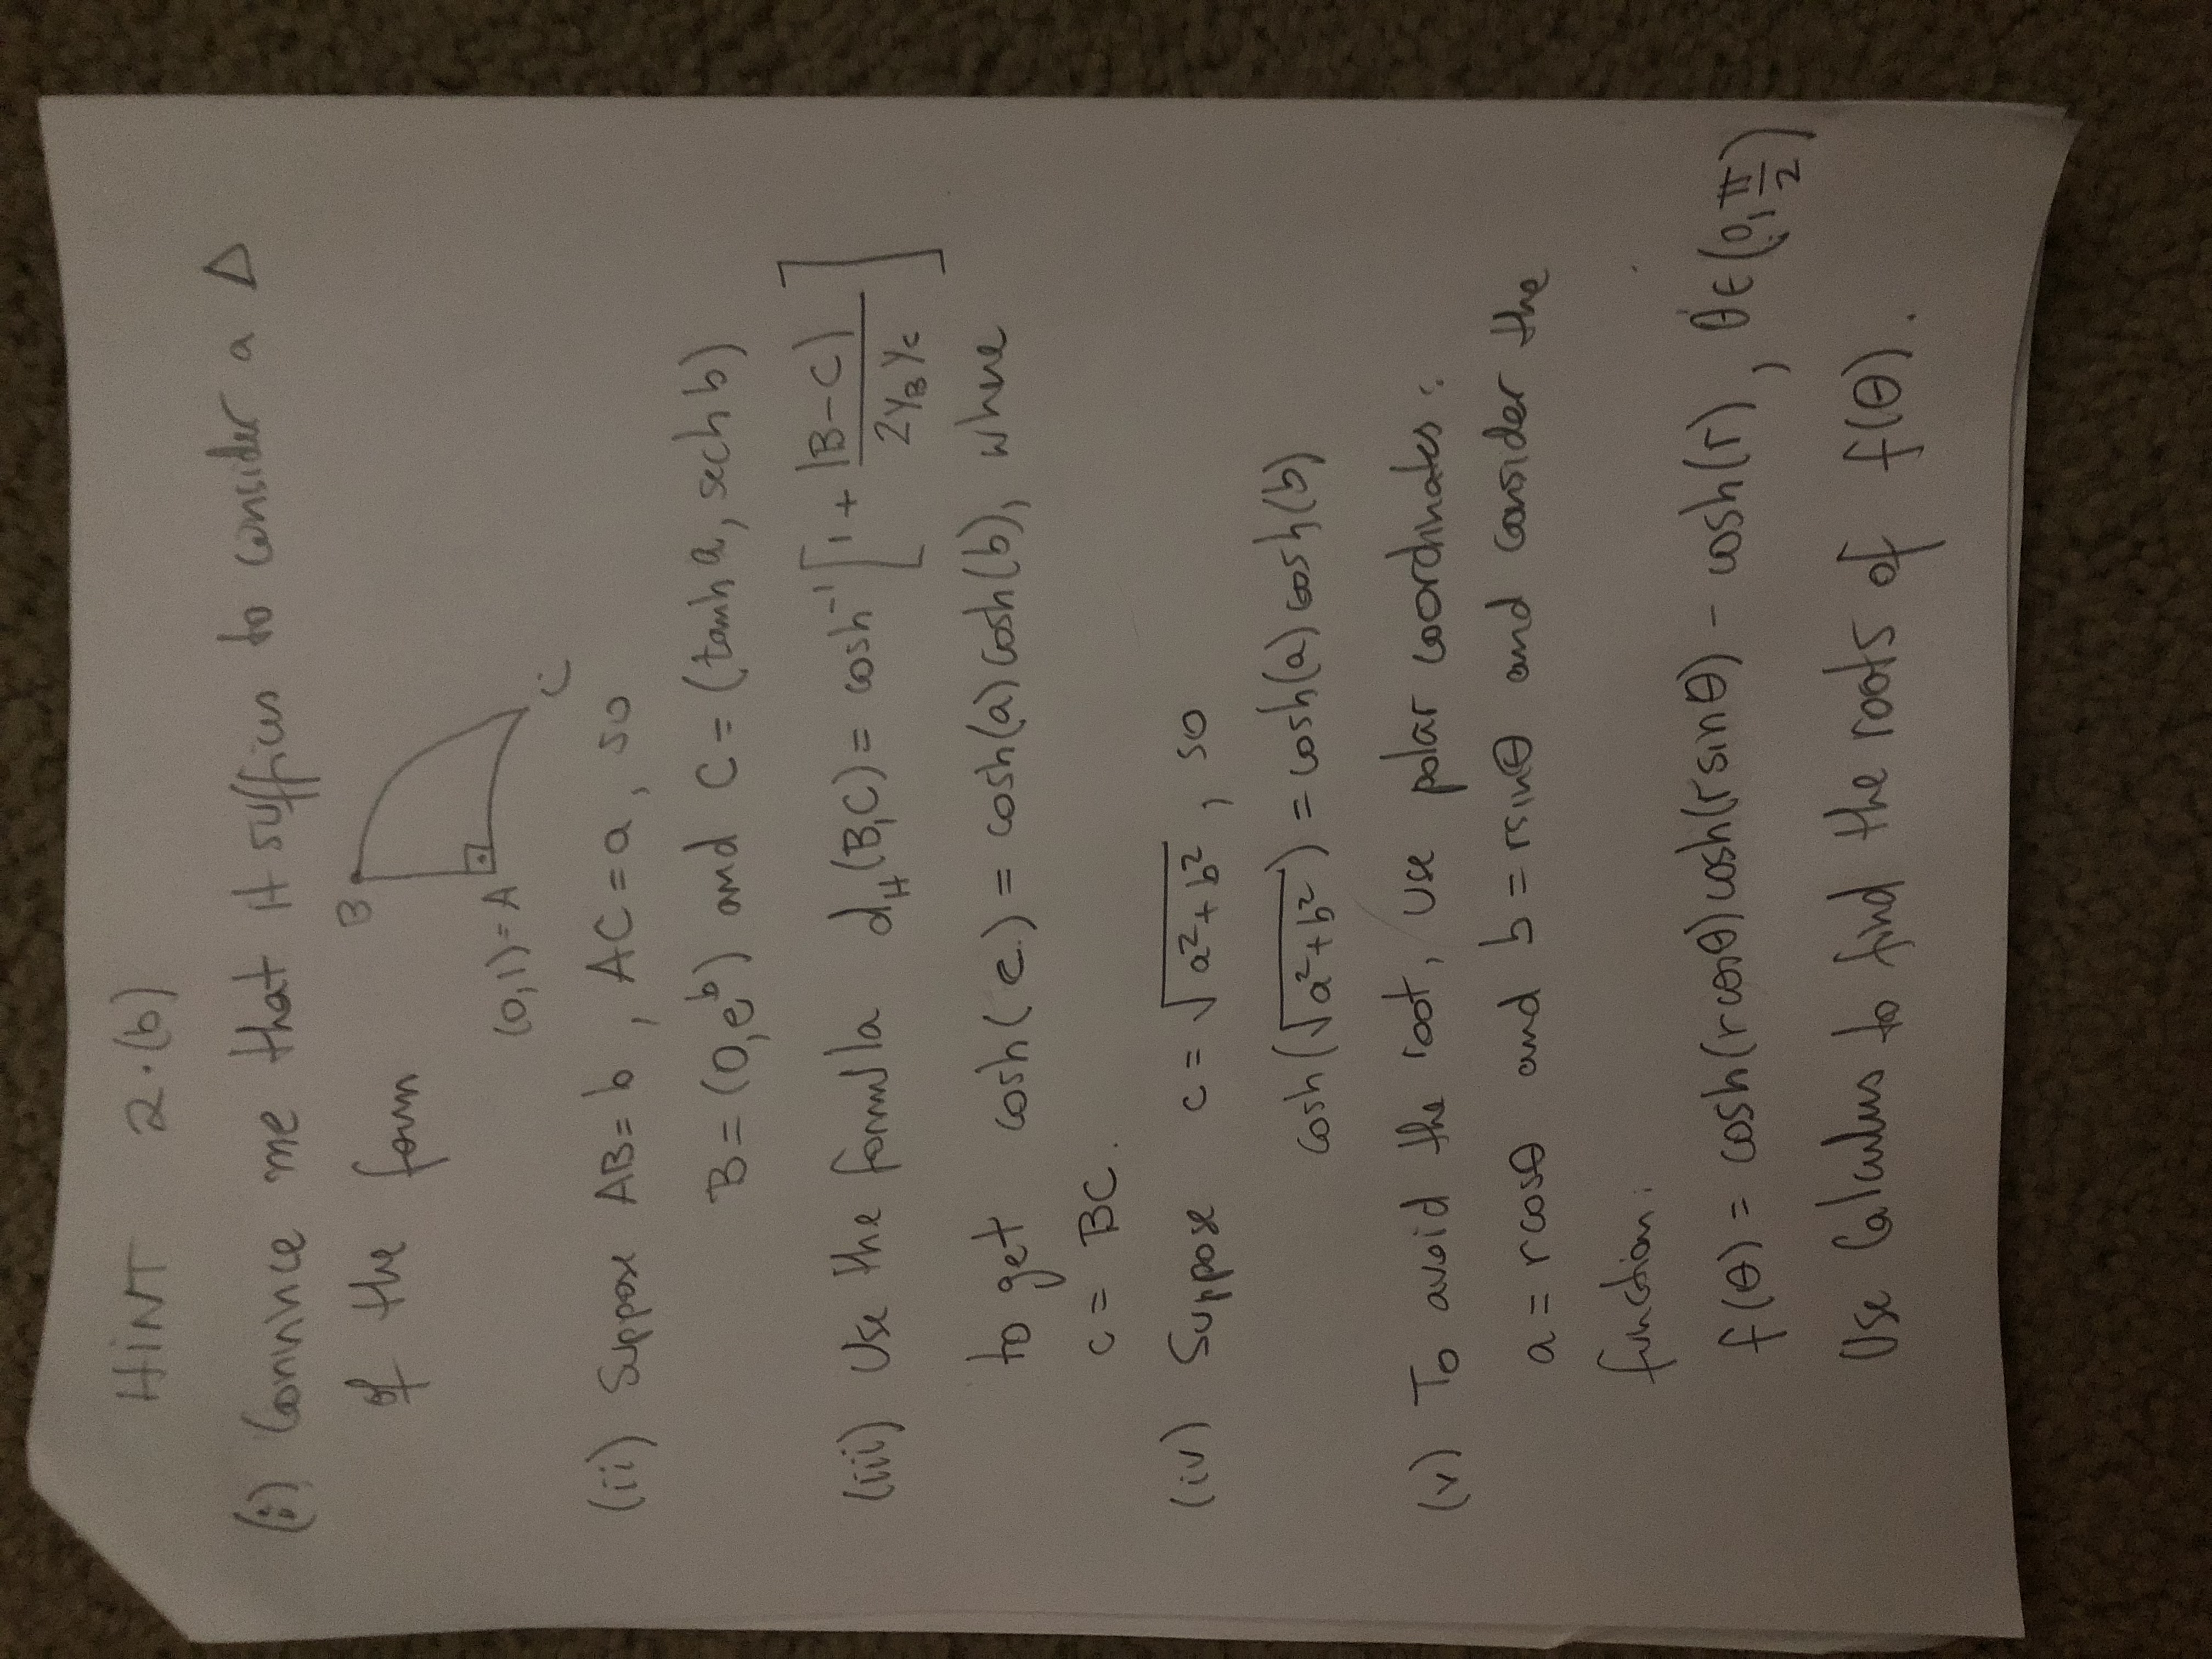 HINT 2.(b)
(i) Convince me that it suffices to consider a Δ
of the form
B
(0,1)=A
C
(ii) Suppose AB= b , AC=a, so
B=(0,e^b) and C=(tanh a, sech b)
(iii) Use the formula d_H(B,C)= cosh^-1 [1 + |B-C| / 2y_B y_C]
to get cosh(c) = cosh(a)cosh(b), where
c = BC.
(iv) Suppose c=√(a²+b²) , so
cosh(√(a²+b²)) = cosh(a) cosh(b)
(v) To avoid the root, use polar coordinates:
a = rcosθ and b=rsinθ and consider the
function:
f(θ) = cosh(rcosθ)cosh(rsinθ) - cosh(r), θ∈(0,π/2)
Use Calculus to find the roots of f(θ).